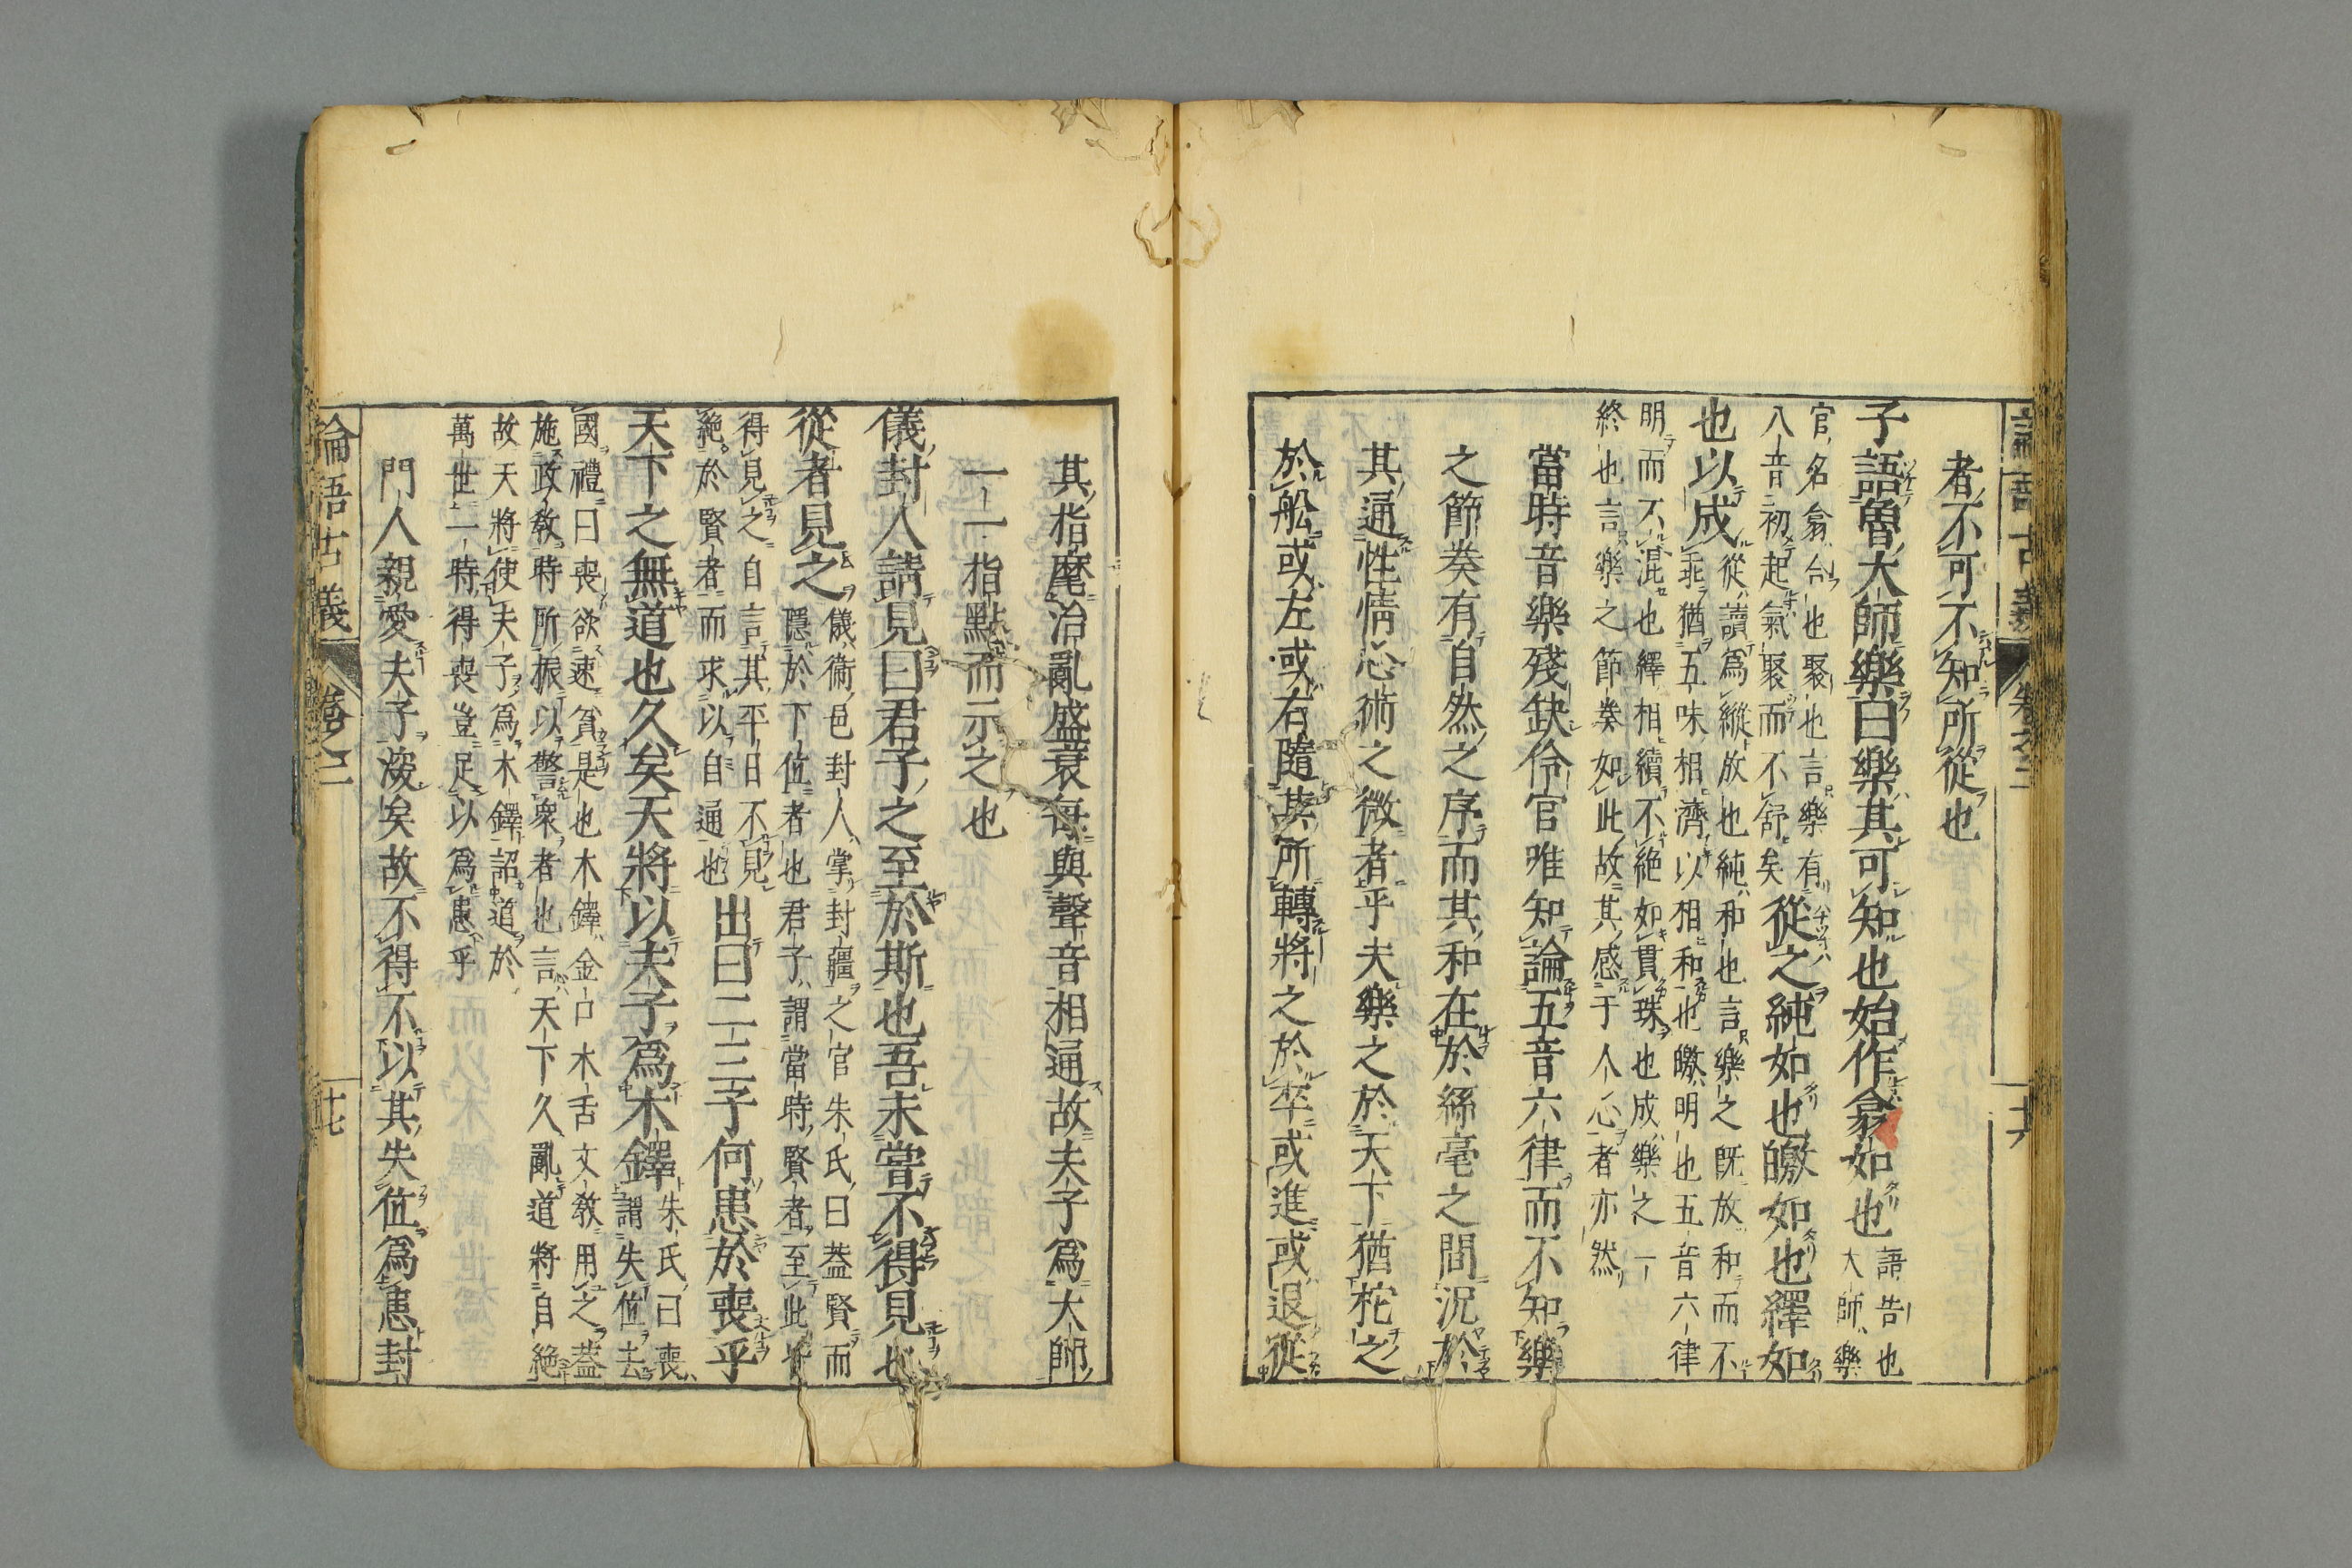 論語古義 卷之二 十六
者不可不知所從也
子語魯大師樂曰樂其可知也始作翕如也
語告也
大師樂
官名翕合也聚也言樂有
八音初起氣聚而不舒矣
從之純如也皦如也繹如
也以成
從讀爲縱放也純和也言樂之既放和而不
乖猶五味相濟以相和也皦明也五音六律
明而不混也繹相續不絶如貫珠也成樂之一
終也言樂之節奏如此故其感于人心者亦然
當時音樂殘缺伶官唯知論五音六律而不知樂
之節奏有自然之序而其和在於絲毫之間況於
其通性情心術之微者乎夫樂之於天下猶柁之
於舩或左或右隨其所轉將之於卒或進或退從
其指麾治亂盛衰每與聲音相通故夫子爲大師
一一指點而示之也
儀封人請見曰君子之至於斯也吾未嘗不得見也
從者見之
儀衞邑封人掌封疆之官朱氏曰蓋賢而
隱於下位者也君子謂當時賢者至此皆
得見之自言其平日不見
絶於賢者而求以自通也
出曰二三子何患於喪乎
天下之無道也久矣天將以夫子爲木鐸
朱氏曰喪
謂失位去
國禮曰喪欲速貧是也木鐸金口木舌文敎用之蓋
施政敎時所振以警衆者也言天下久亂道將自絶
故天將使夫子爲木鐸詔道於
萬世一時得喪豈足以爲患乎
門人親愛夫子深矣故不得不以其失位爲患封
論語古義 卷之二 十七